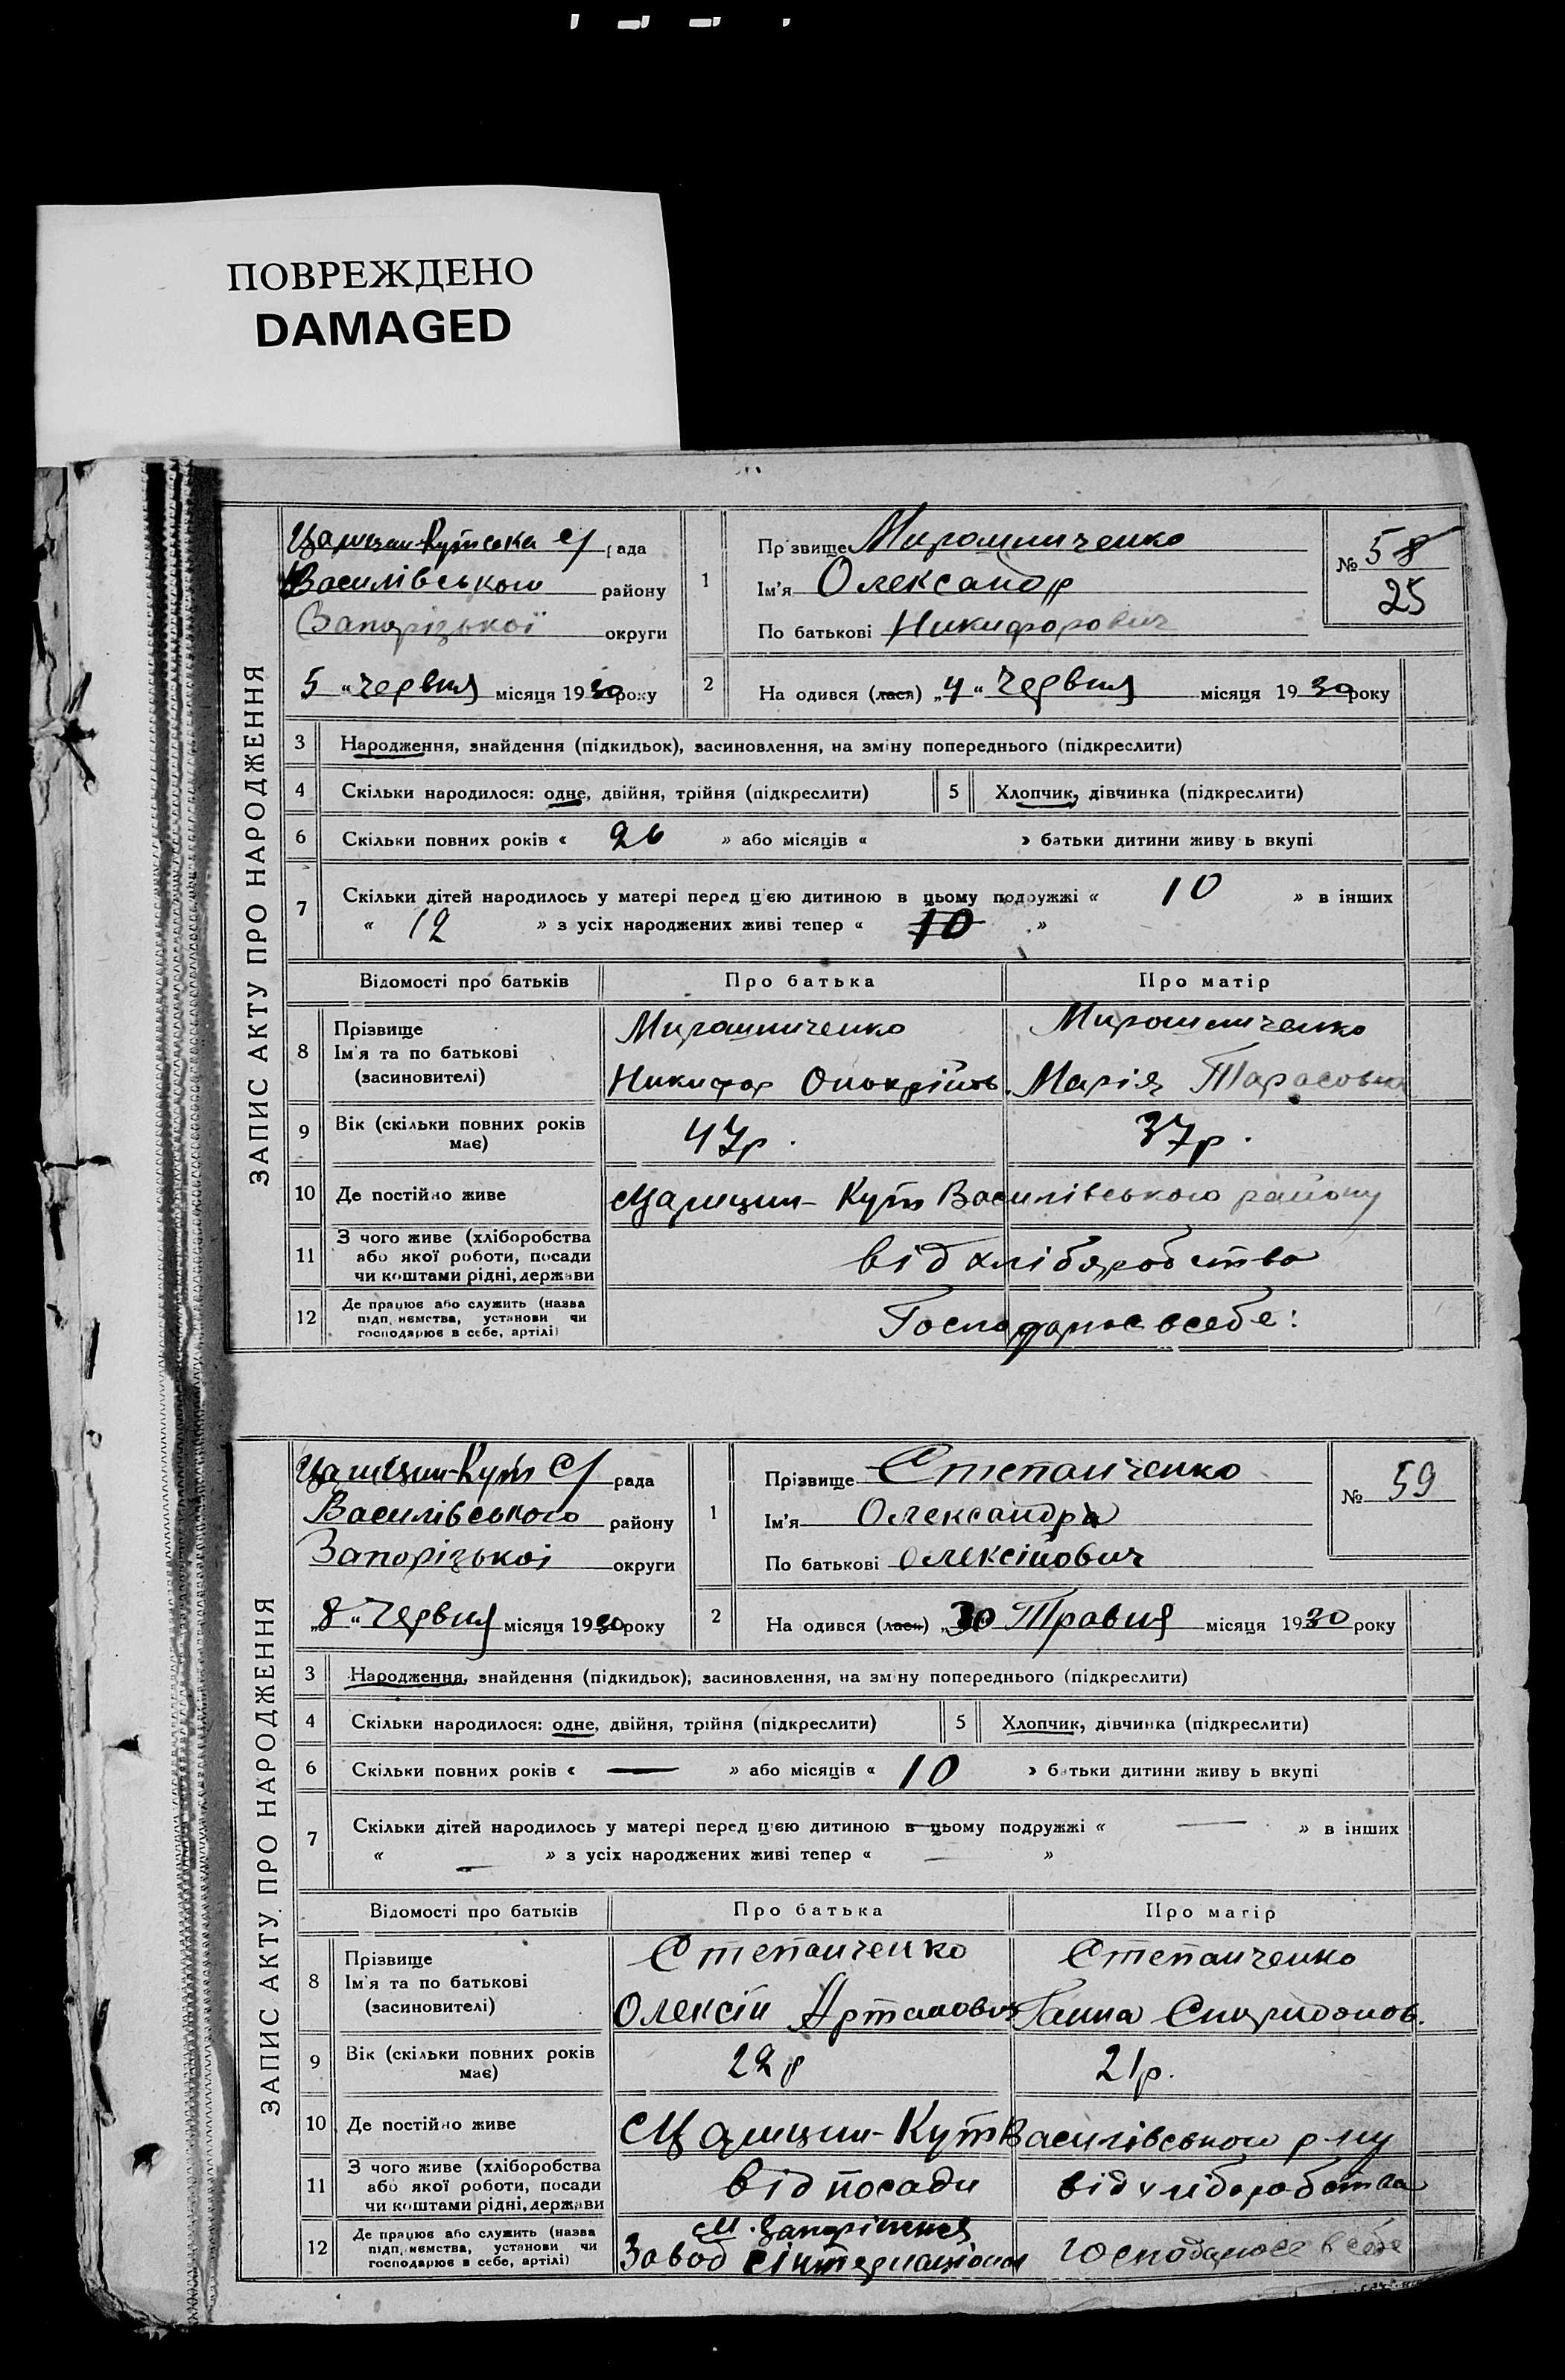 ПОВРЕЖДЕНО
DAMAGED
ЗАПИС АКТУ ПРО НАРОДЖЕННЯ
Царицин-Кутська с/ рада
Василівського району
Запорізької округи
5 „ червня місяця 1930 року
1 Прізвище Мирошниченко
Ім'я Олександр
По батькові Никифорович
№ 58
25
2 На одився (лася) „4" Червня місяця 1930 року
3 Народження, знайдення (підкидьок), засиновлення, на зміну попереднього (підкреслити)
4 Скільки народилося: одне, двійня, трійня (підкреслити) 5 Хлопчик, дівчинка (підкреслити)
6 Скільки повних років « 26 » або місяців « » батьки дитини живу ь вкупі
7 Скільки дітей народилось у матері перед цією дитиною в цьому подружжі « 10 » в інших
« 12 » з усіх народжених живі тепер « 10 »
Відомості про батьків Про батька Про матір
8 Прізвище
Ім'я та по батькові
(засиновителі)
Мирошниченко Мирошниченко
Никифор Марія Тарасовна
9 Вік (скільки повних років має) 47р. 37р.
10 Де постійно живе Царицин-Кут Василівського району
11 З чого живе (хліборобства
або якої роботи, посади
чи коштами рідні, держави
від хліборобства
12 Де працює або служить (назва
підп. ємства, установи чи
господарює в себе, артілі)
Господарює в себе:
ЗАПИС АКТУ ПРО НАРОДЖЕННЯ
Царицин-Кут с/ рада
Василівського району
Запорізької округи
„8" Червня місяця 1930 року
1 Прізвище Степанченко
Ім'я Олександр
По батькові Олексійович
№ 59
2 На одився (лася) „30 Травня місяця 1930 року
3 Народження, знайдення (підкидьок), засиновлення, на зміну попереднього (підкреслити)
4 Скільки народилося: одне, двійня, трійня (підкреслити) 5 Хлопчик, дівчинка (підкреслити)
6 Скільки повних років « — » або місяців « 10 » батьки дитини живу ь вкупі
7 Скільки дітей народилось у матері перед цією дитиною в цьому подружжі « — » в інших
« — » з усіх народжених живі тепер « — »
Відомості про батьків Про батька Про матір
8 Прізвище
Ім'я та по батькові
(засиновителі)
Степанченко Степанченко
Олексій Артамович Ганна Спиридонов.
9 Вік (скільки повних років має) 22р 21р.
10 Де постійно живе Царицин-Кут Василівського р-ну
11 З чого живе (хліборобства
або якої роботи, посади
чи коштами рідні, держави
від посади від хліборобства
12 Де працює або служить (назва
підп. ємства, установи чи
господарює в себе, артілі)
м. Запоріжжя
Завод господарює в себе